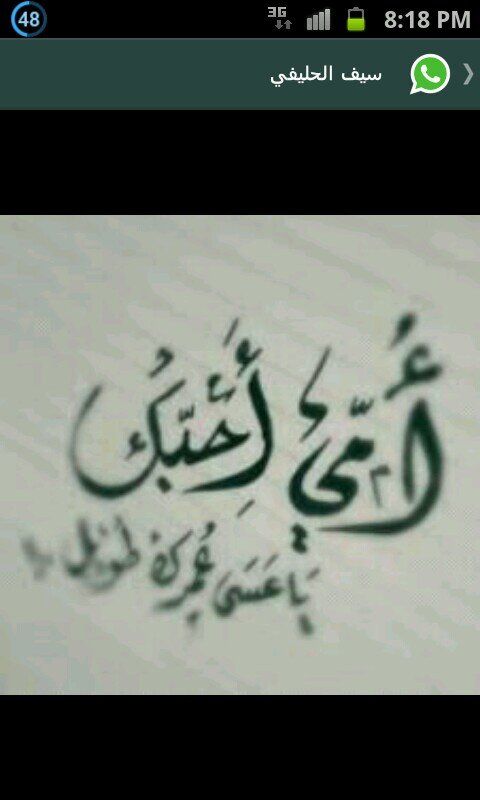 48 3G 8:18 PM
سيف الحليفي
أُمّي أُحبّكِ
يَا عَسَى عُمرِك طويل